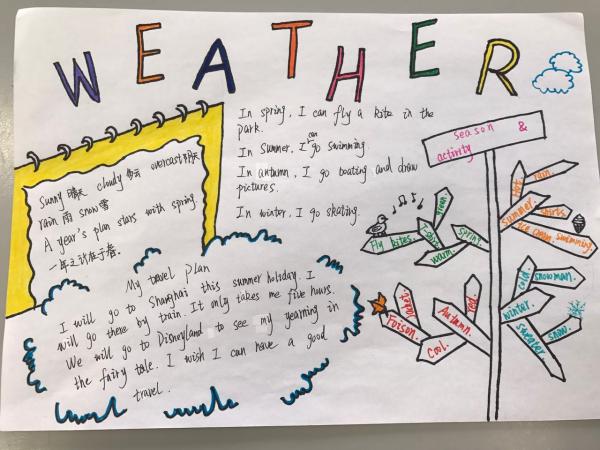 WEATHER
In spring, I can fly a kite in the
park.
In Summer, I can go swimming.
In autumn, I go boating and draw
pictures.
In winter, I go skating.
Sunny 晴天 cloudy 多云 overcast 阴天
rain 雨 snow 雪
A year's plan stars with spring.
一年之计在于春.
My travel plan
I will go to Shanghai this summer holiday. I
will go there by train. It only takes me five hours.
We will go to Disneyland to see my yearning in
the fairy tale. I wish I can have a good
travel.
season &
activity
green.
Fly kites.
T-shirt.
spring.
warm.
hot.
rain.
summer.
shirts.
ice cream.
swimming.
jacket.
Foison.
cool.
Autumn.
red.
cold.
snowman.
winter.
sweater
snow.